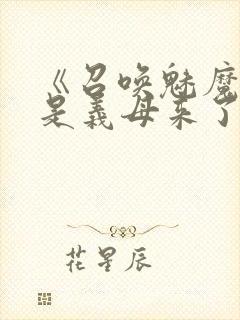 《召唤魅魔
是義母来了
花星辰